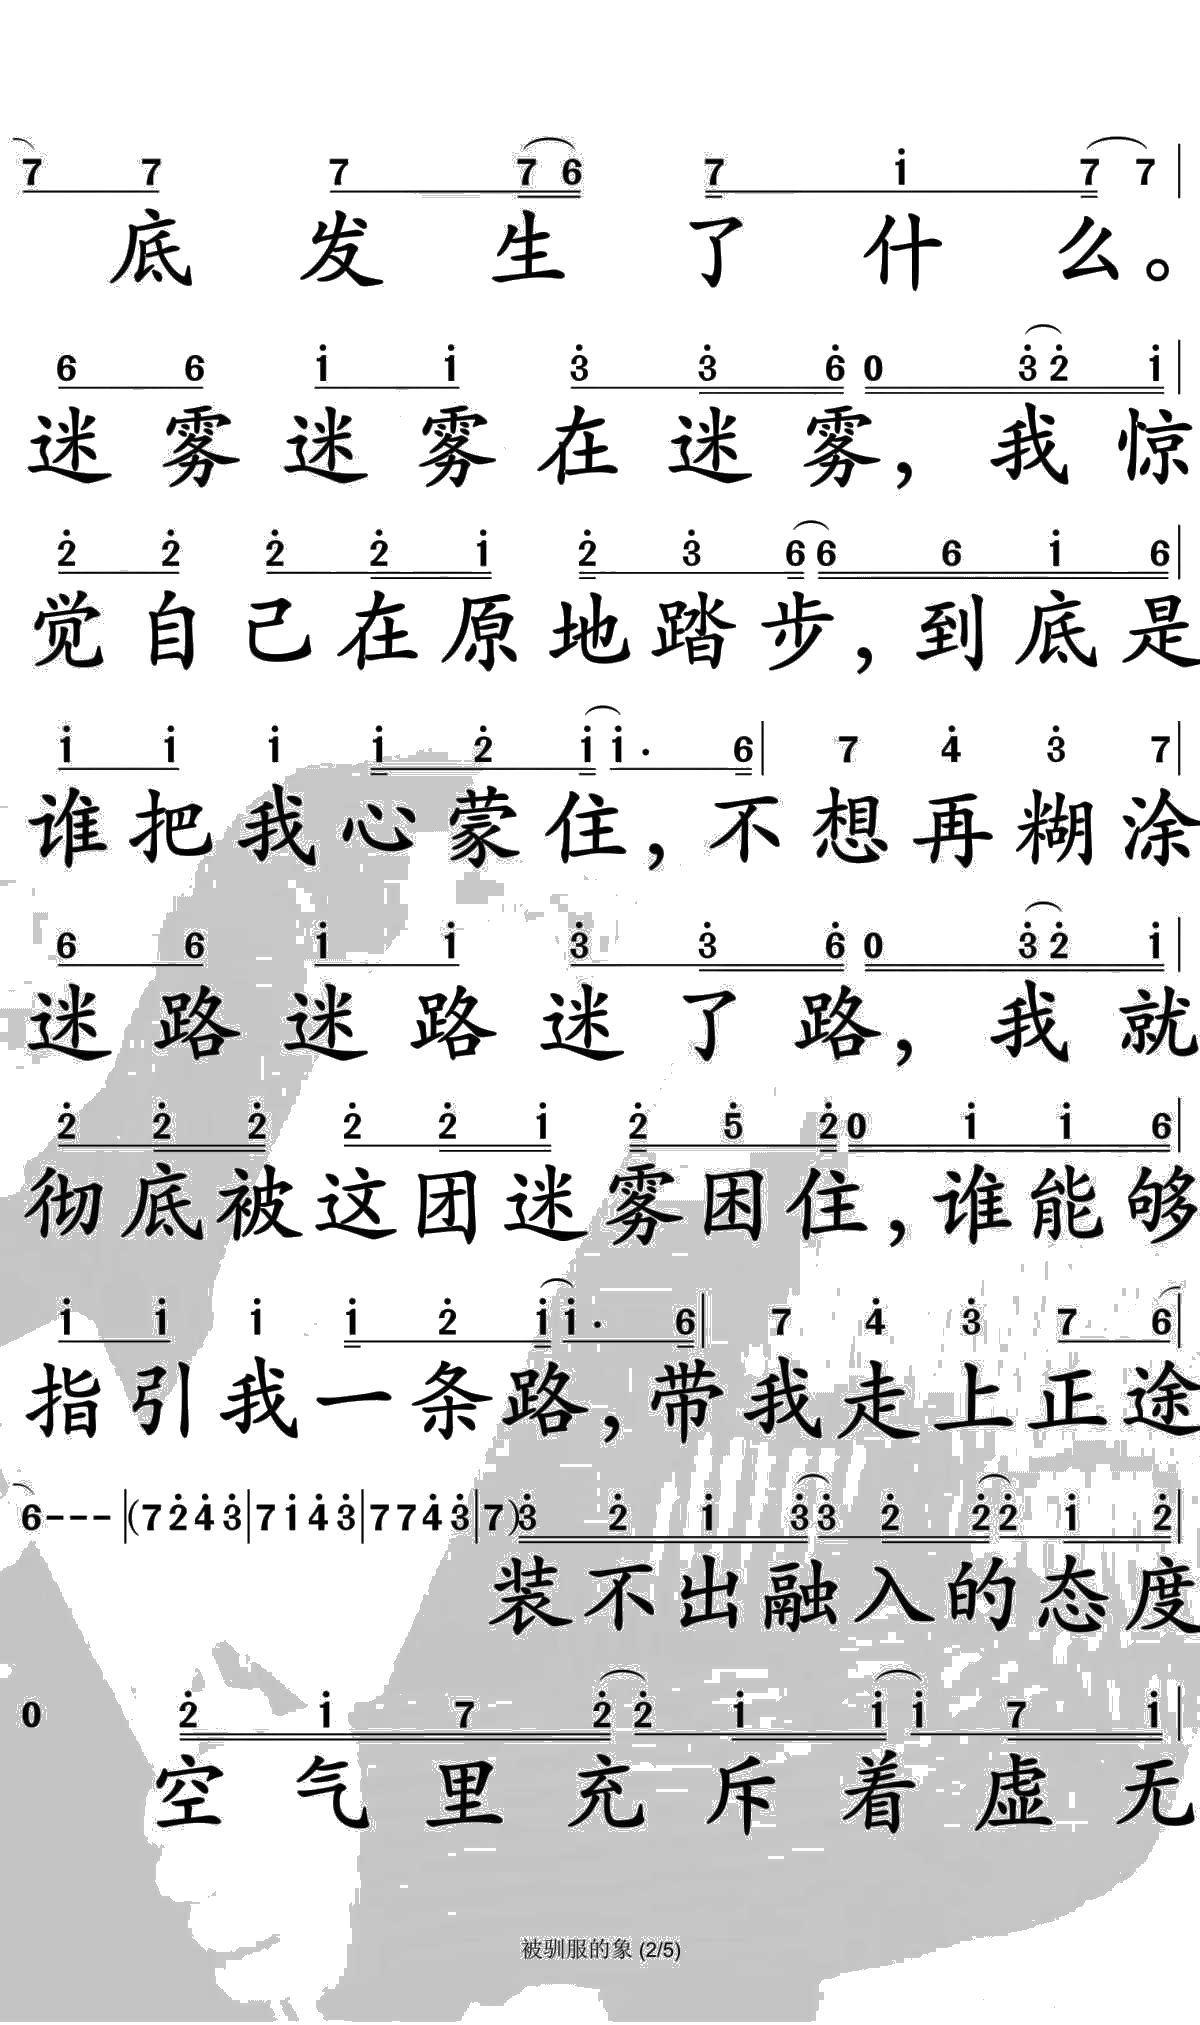 7 7 7 7 6 7 i 7 7
底发生了什么。
6 6 i i 3 3 6 0 3 2 i
迷雾迷雾在迷雾,我惊
2 2 2 2 i 2 3 6 6 6 i 6
觉自己在原地踏步,到底是
i i i i 2 i i. 6 7 4 3 7
谁把我心蒙住,不想再糊涂
6 6 i i 3 3 6 0 3 2 i
迷路迷路迷了路,我就
2 2 2 2 2 i 2 5 2 0 i i 6
彻底被这团迷雾困住,谁能够
i i i i 2 i i. 6 7 4 3 7 6
指引我一条路,带我走上正途
6--- |(7 2 4 3|7 i 4 3|7 7 4 3|7) 3 2 i 3 3 2 2 2 i 2
装不出融入的态度
0 2 i 7 2 2 i i i 7 i
空气里充斥着虚无
被驯服的象 (2/5)